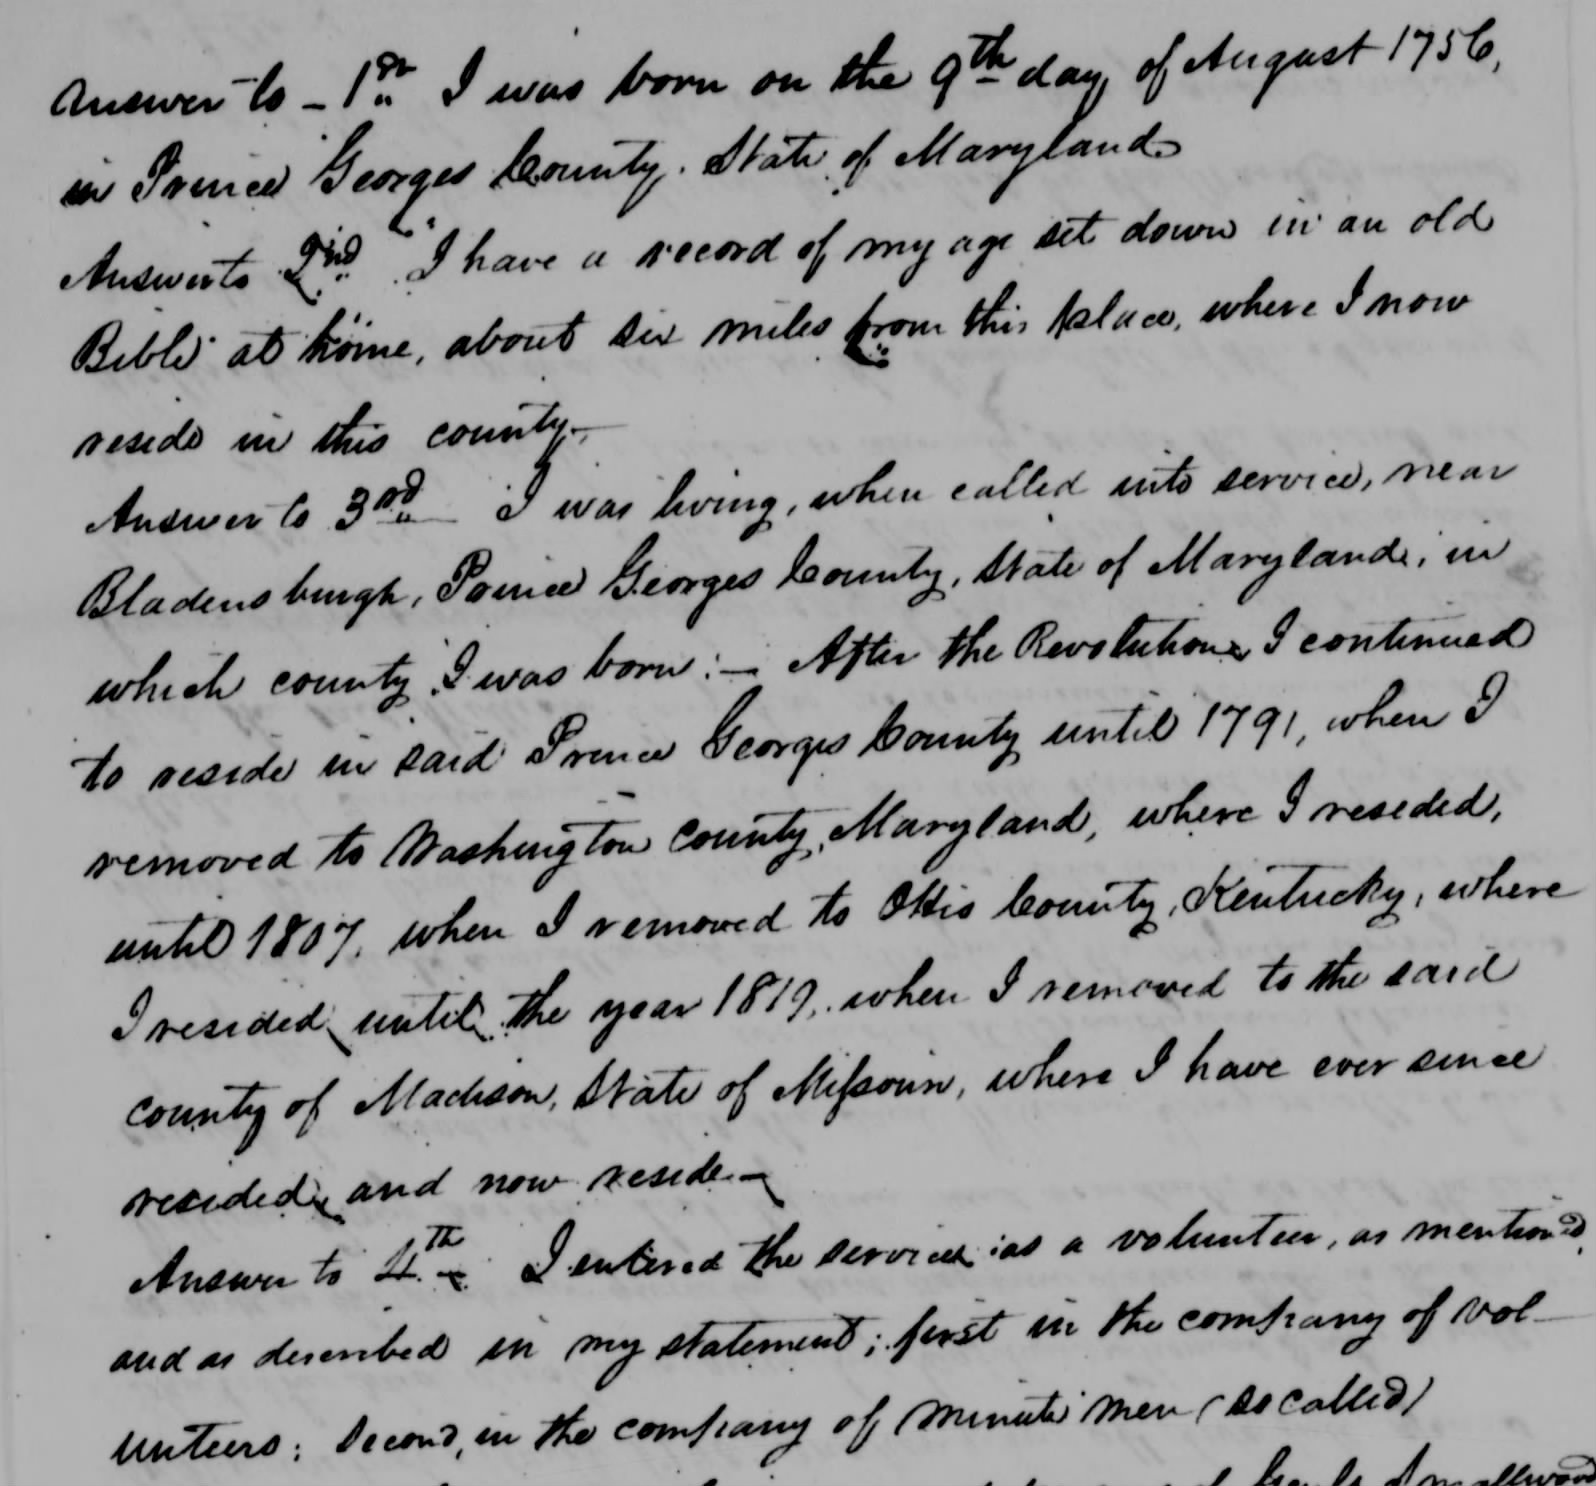 Answer to - 1st I was born on the 9th day of August 1756,
in Prince Georges County. State of Maryland
Answer to 2nd I have a record of my age set down in an old
Bible at home, about six miles from this place, where I now
reside in this county.-
Answer to 3rd I was living, when called into service, near
Bladensburgh, Prince Georges County, State of Maryland, in
which county I was born:- After the Revolution I continued
to reside in said Prince Georges County until 1791, when I
removed to Washington County, Maryland, where I reseded,
until 1807, when I removed to Ohio County, Kentucky, where
I resided, until, the year 1819, when I removed to the said
county of Madison, State of Missouri, where I have ever since
resided, and now reside.-
Answer to 4.th I entered the service as a volunteer, as mentioned,
and as described in my statement; first in the company of vol-
unteers; Second, in the company of minute men (so called)
Smallwood